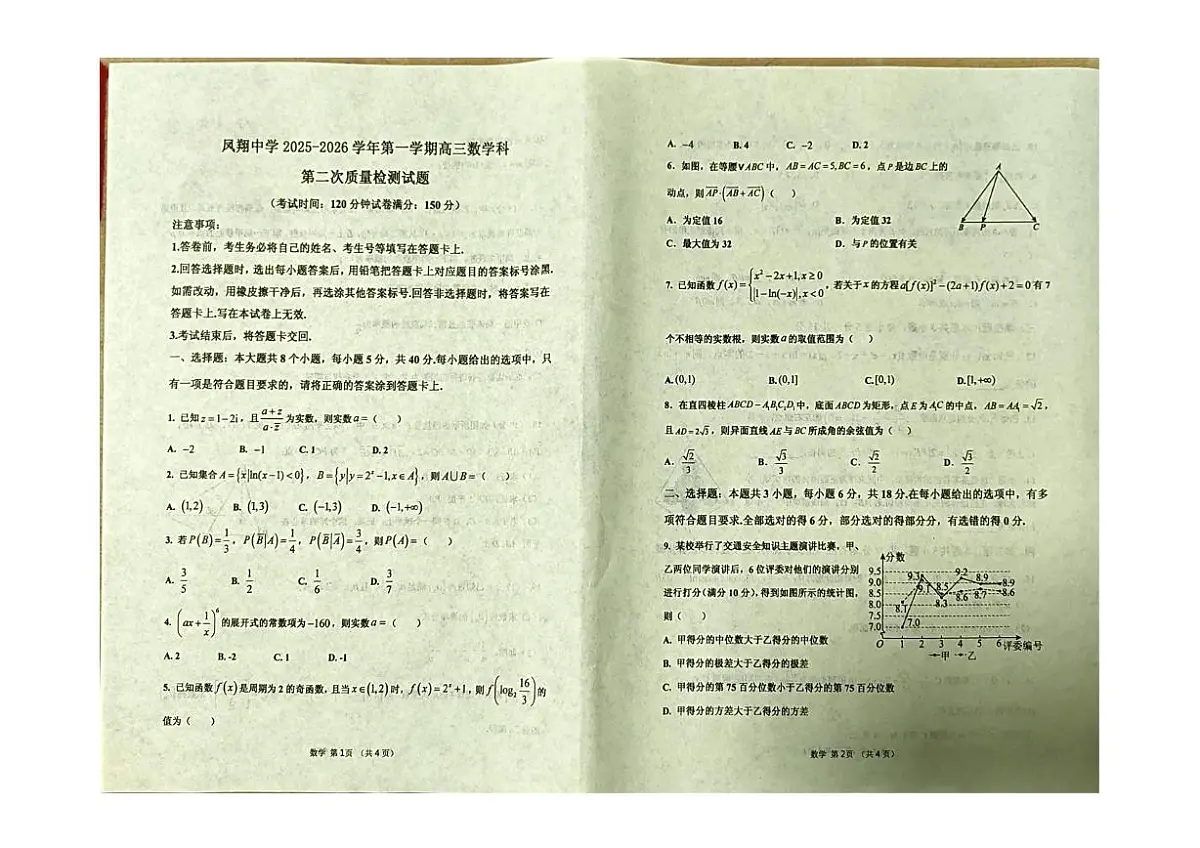 凤翔中学 2025-2026 学年第一学期高三数学科
第二次质量检测试题
（考试时间：120 分钟试卷满分：150 分）
注意事项：
1.答卷前，考生务必将自己的姓名、考生号等填写在答题卡上.
2.回答选择题时，选出每小题答案后，用铅笔把答题卡上对应题目的答案标号涂黑.
如需改动，用橡皮擦干净后，再选涂其他答案标号.回答非选择题时，将答案写在
答题卡上.写在本试卷上无效.
3.考试结束后，将答题卡交回.
一、选择题：本大题共 8 个小题，每小题 5 分，共 40 分.每小题给出的选项中，只
有一项是符合题目要求的，请将正确的答案涂到答题卡上.
1. 已知 z=1-2i，且 (a+z)/(a·z) 为实数，则实数 a=（ ）
A. -2 B. -1 C. 1 D. 2
2. 已知集合 A={x|ln(x-1)<0}，B={y|y=2^x-1,x∈A}，则 A∪B=（ ）
A. (1,2) B. (1,3) C. (-1,3) D. (-1,+∞)
3. 若 P(B)=1/3，P(B̅|A)=1/4，P(B̅|A̅)=3/4，则 P(A)=（ ）
A. 3/5 B. 1/2 C. 1/6 D. 3/7
4. (ax+1/x)^6 的展开式的常数项为 -160，则实数 a=（ ）
A. 2 B. -2 C. 1 D. -1
5. 已知函数 f(x) 是周期为 2 的奇函数，且当 x∈(1,2) 时，f(x)=2^x+1，则 f(log₂ 16/3) 的
值为（ ）
数学 第 1页 （共 4 页）
A. -4 B. 4 C. -2 D. 2
6. 如图，在等腰▽ABC 中，AB=AC=5,BC=6，点 P 是边 BC 上的
动点，则 AP·(AB+AC)（ ）
A. 为定值 16 B. 为定值 32
C. 最大值为 32 D. 与 P 的位置有关
A
B P C
7. 已知函数 f(x)={x²-2x+1,x≥0 |1-ln(-x)|,x<0，若关于 x 的方程 a[f(x)]²-(2a+1)f(x)+2=0 有 7
个不相等的实数根，则实数 a 的取值范围为（ ）
A.(0,1) B.(0,1] C.[0,1) D.[1,+∞)
8. 在直四棱柱 ABCD-A₁B₁C₁D₁ 中，底面 ABCD 为矩形，点 E 为 A₁C 的中点，AB=AA₁=√2，
且 AD=2√3，则异面直线 AE 与 BC 所成角的余弦值为（ ）
A. √2/3 B. √3/3 C. √2/2 D. √3/2
二、选择题：本题共 3 小题，每小题 6 分，共 18 分.在每小题给出的选项中，有多
项符合题目要求.全部选对的得 6 分，部分选对的得部分分，有选错的得 0 分.
9. 某校举行了交通安全知识主题演讲比赛，甲、
乙两位同学演讲后，6 位评委对他们的演讲分别
进行打分(满分 10 分)，得到如图所示的统计图，
则（ ）
A. 甲得分的中位数大于乙得分的中位数
B. 甲得分的极差大于乙得分的极差
C. 甲得分的第 75 百分位数小于乙得分的第 75 百分位数
D. 甲得分的方差大于乙得分的方差
分数
9.5
9.0
8.5
8.0
7.5
7.0
9.3 9.2 8.9 8.9
9.1 8.5 8.6 8.7 8.6
8.1 8.3
7.0
O 1 2 3 4 5 6 评委编号
甲 乙
数学 第 2页 （共 4 页）